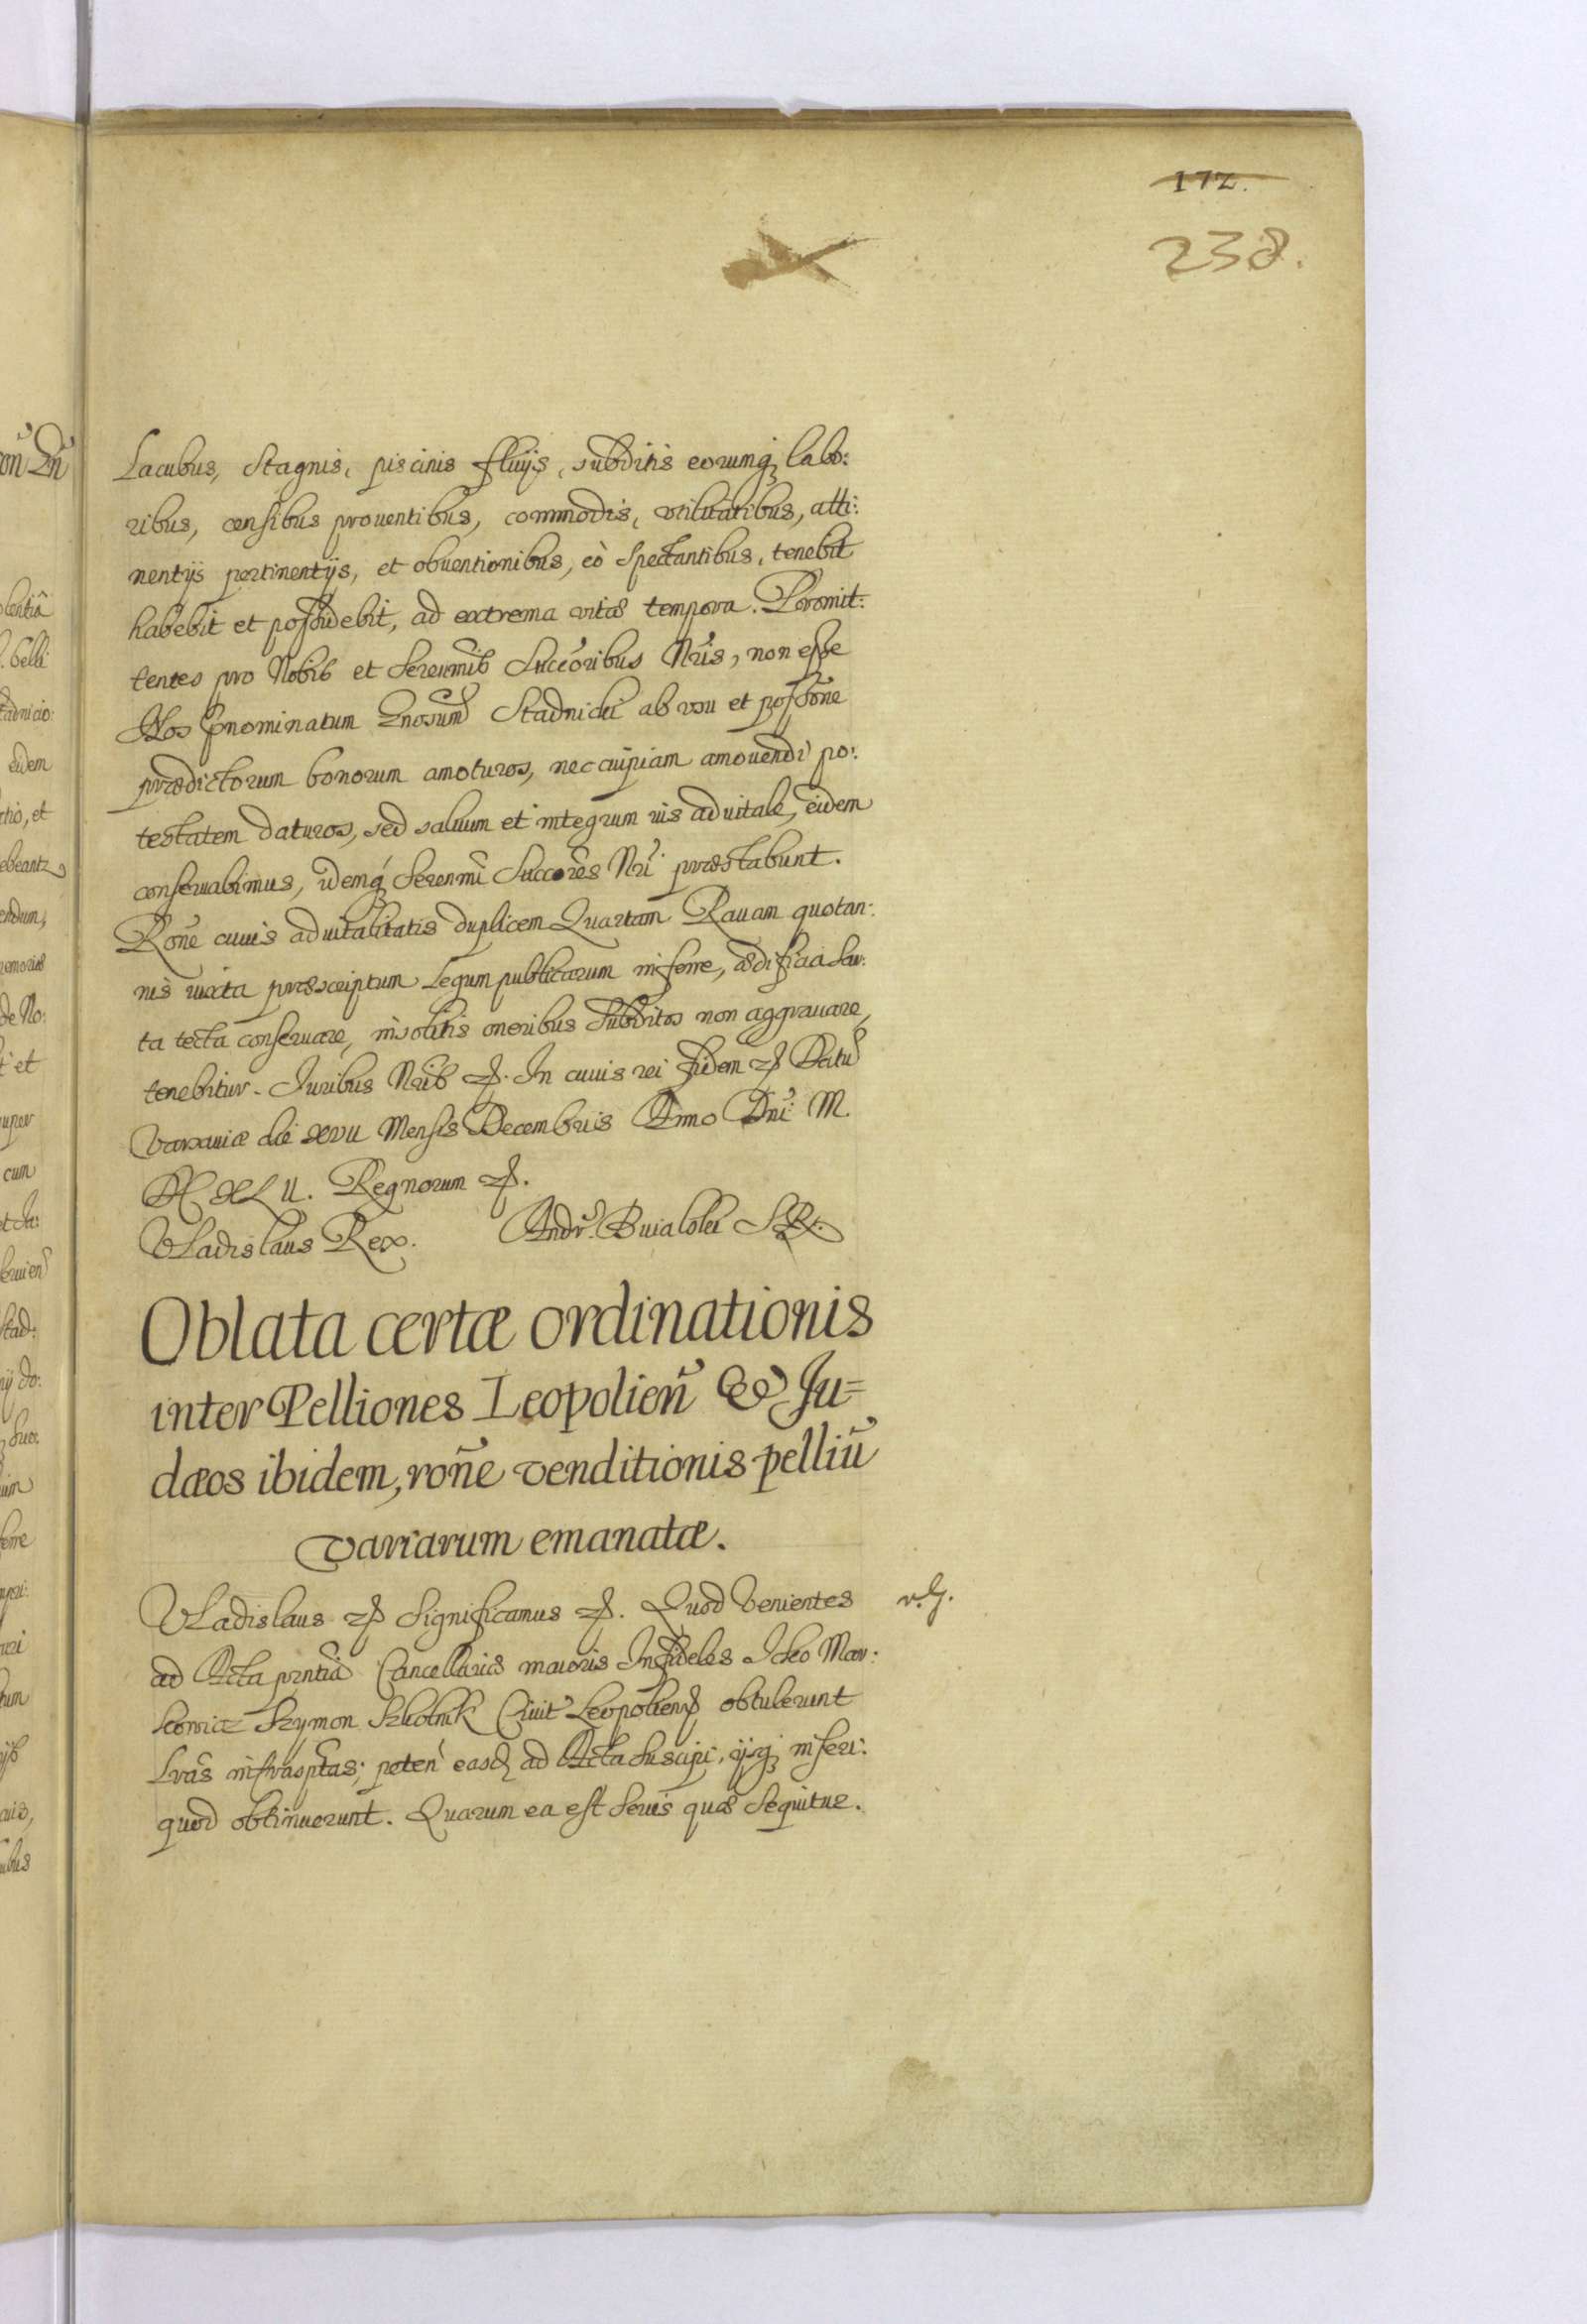 172.
238.
Lacubus, Stagnis, piscinis fluijs, subditis eorumq; labo:
ribus, censibus prouentibus, commodis, vtilitatibus, atti:
nentijs pertinentijs, et obuentionibus, eò spectantibus, tenebit
habebit et possidebit, ad extrema vitæ tempora. Promit:
tentes pro Nobis et Serenmis Succoribus Nris, non esse
Nos pnominatum Gnosum Stadnicki ab vsu et possone
prædictorum bonorum amoturos, nec cuipiam amouendi po:
testatem daturos, sed saluum et integrum ius aduitale, eidem
conseruabimus, idemq; Serenmi Succores Nri præstabunt.
Rone cuius aduitalitatis duplicem Quartam Rauam quotan:
nis iuxta præscriptum Legum publicarum inferre, ædificia Sar:
ta tecta conseruare, insolitis oneribus Subditos non aggrauare,
tenebitur. Iuribus Nris etc. In cuius rei fidem etc Datu
Varsauiæ die XVII Mensis Decembris Anno Dni M.
DCXLII. Regnorum etc.
Vladislaus Rex. Andr. Buialski SRM
Oblata certæ ordinationis
inter Pelliones Leopolien & Ju=
dæos ibidem, rone venditionis pelliu
variarum emanatæ.
Vladislaus etc Significamus etc. Quod Venientes
ad Acta pntia Cancellariæ maioris Infideles Icko Mar:
kowicz Szymon Szkolnik Ciuit Leopolien obtulerunt
Lras infrasptas; peten easd ad Acta suscipi, ijsq; inseri:
quod obtinuerunt. Quarum ea est Series quæ Sequitur.